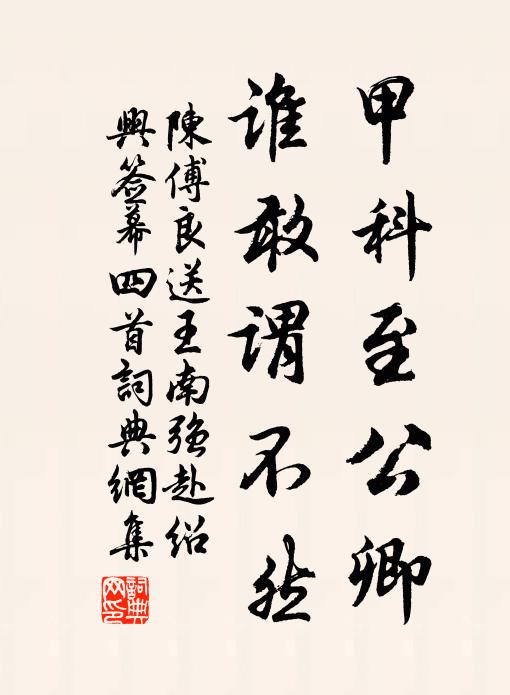 甲科至公卿
誰敢謂不然
陳傅良送王南強赴紹
興簽幕四首詞典網集
詞典網印